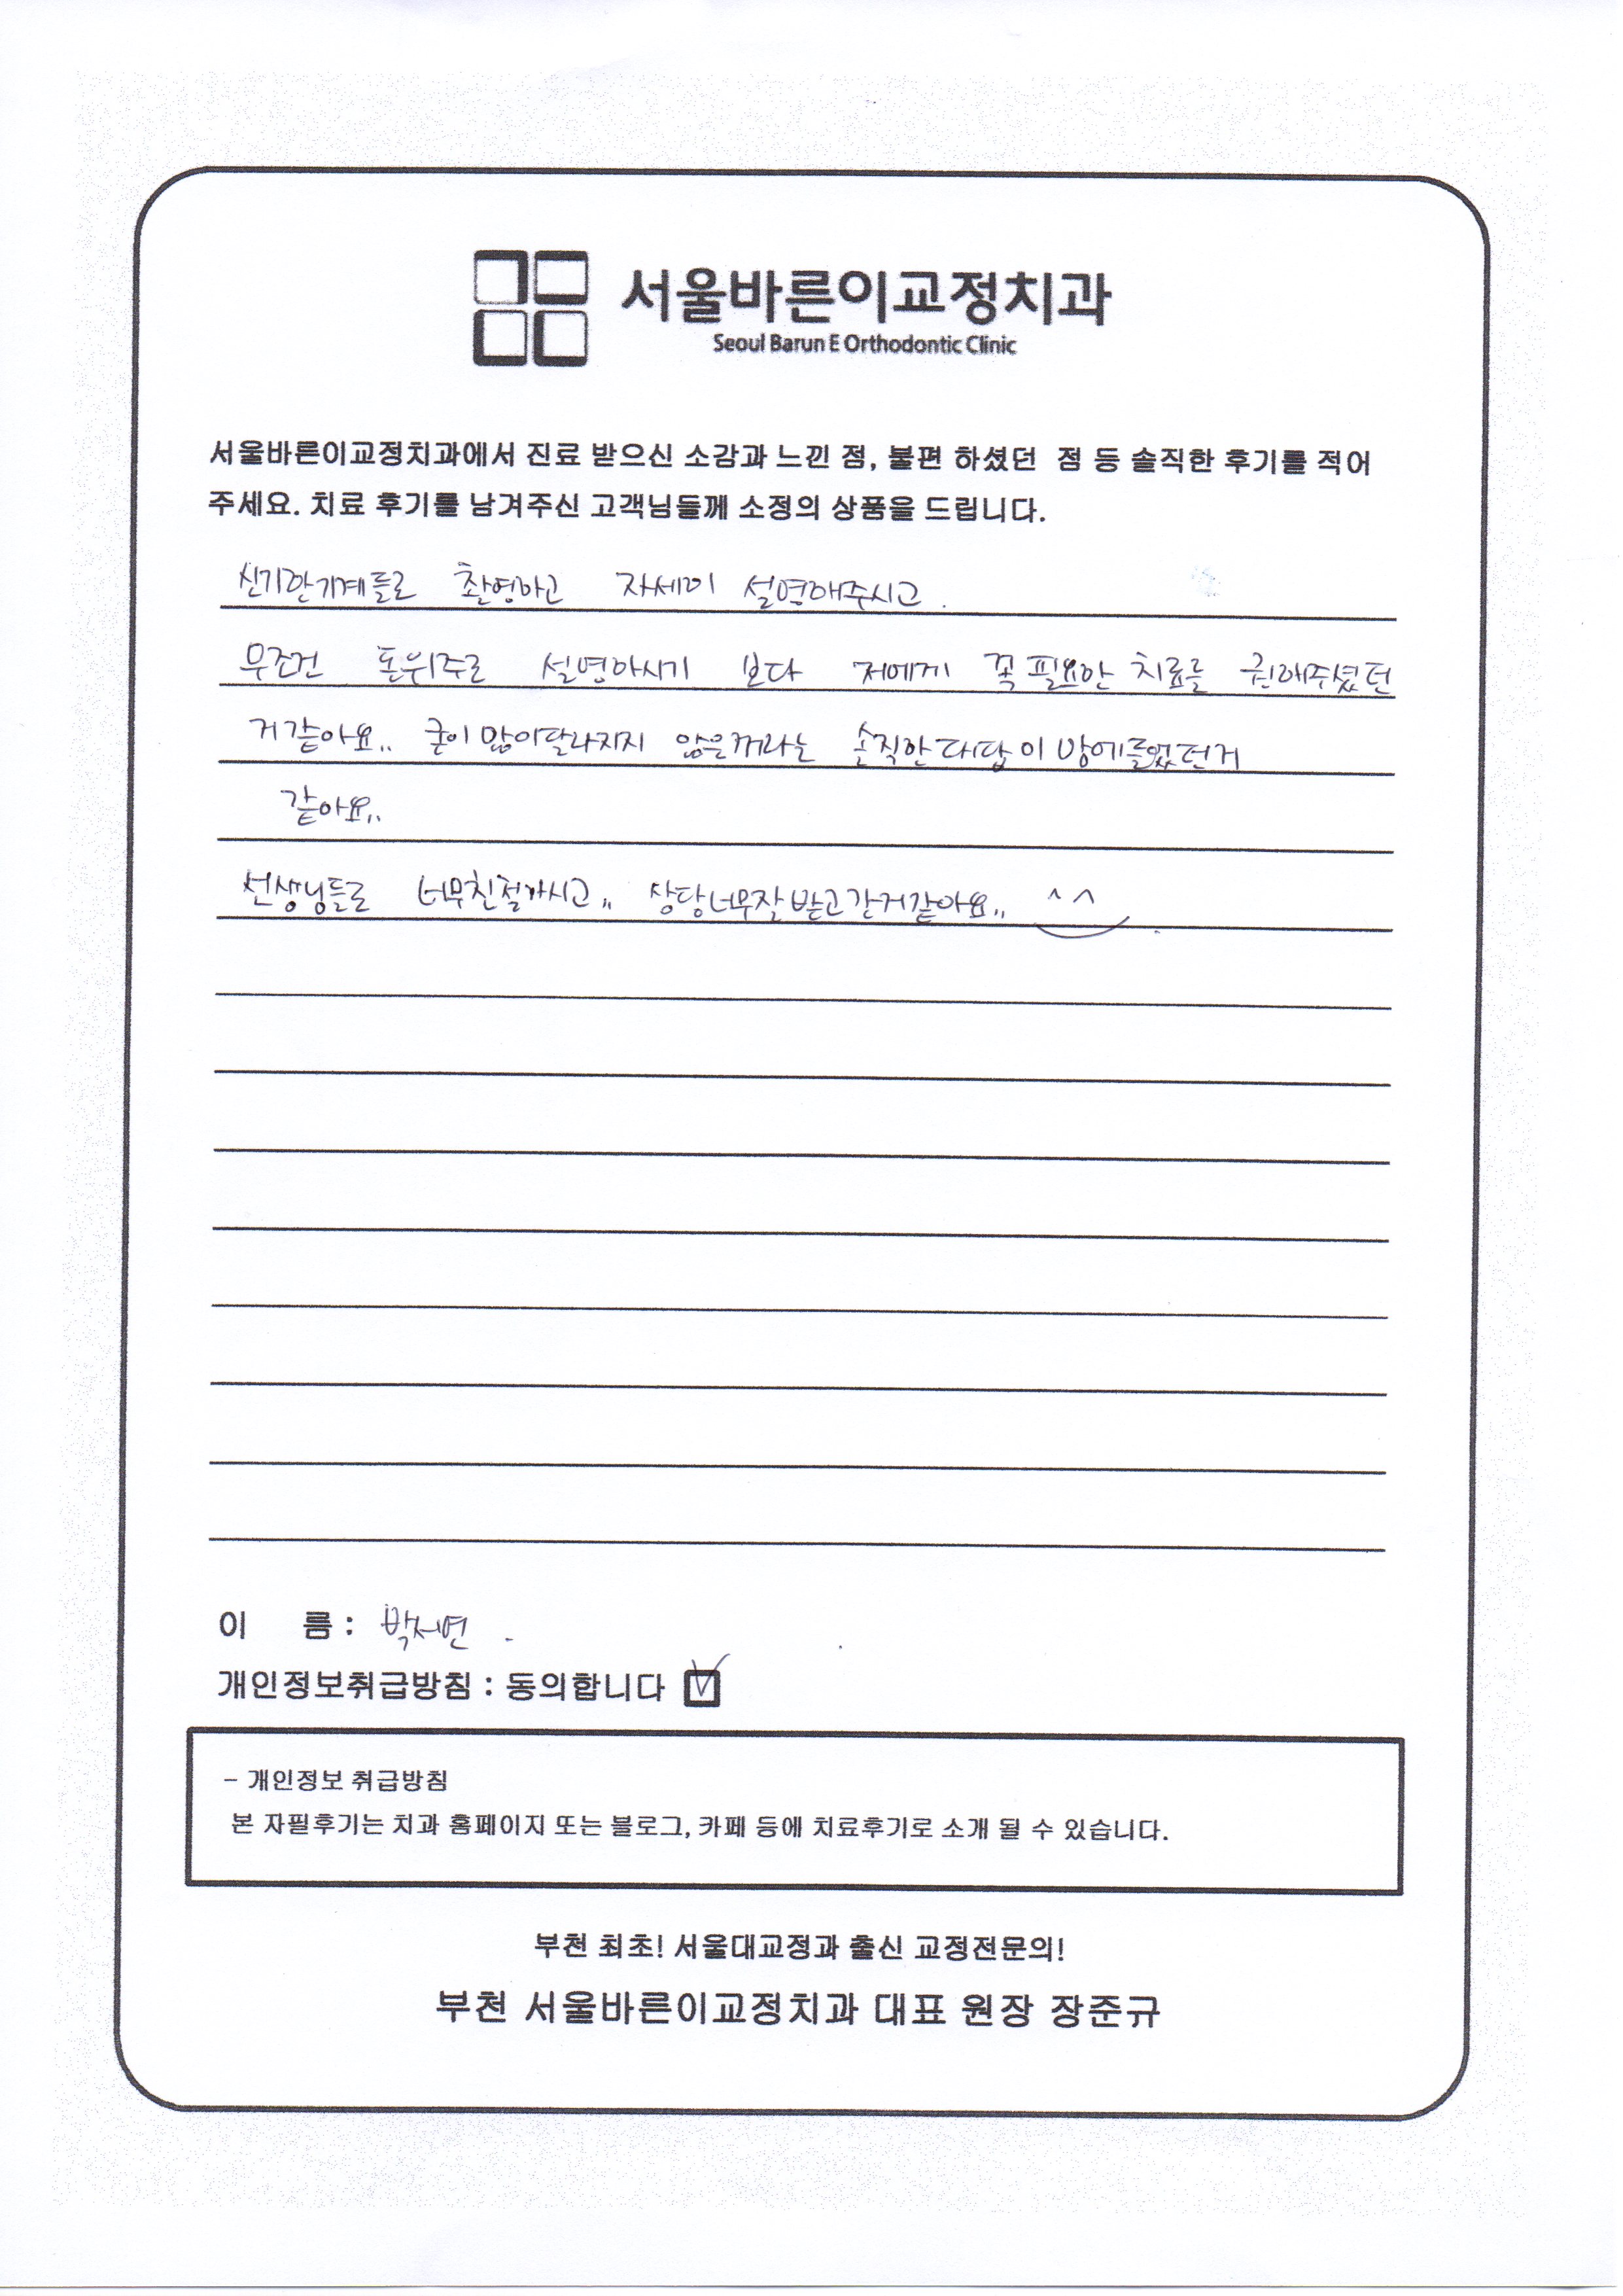 서울바른이교정치과
Seoul Barun E Orthodontic Clinic
서울바른이교정치과에서 진료 받으신 소감과 느낀 점, 불편 하셨던 점 등 솔직한 후기를 적어
주세요. 치료 후기를 남겨주신 고객님들께 소정의 상품을 드립니다.
신기한기계들로 촬영하고 자세히 설명해주시고.
무조건 돈위주로 설명하시기 보다 저에게 꼭 필요한 치료를 권해주셨던
거같아요.. 굳이 많이달라지지 않은꺼라는 솔직한대답이 맘에들었던거
같아요..
선생님들도 너무친절하시고,, 상담너무잘받고간거같아요.. ^^
이 름 : 박서연.
개인정보취급방침 : 동의합니다
- 개인정보 취급방침
본 자필후기는 치과 홈페이지 또는 블로그, 카페 등에 치료후기로 소개 될 수 있습니다.
부천 최초! 서울대교정과 출신 교정전문의!
부천 서울바른이교정치과 대표 원장 장준규